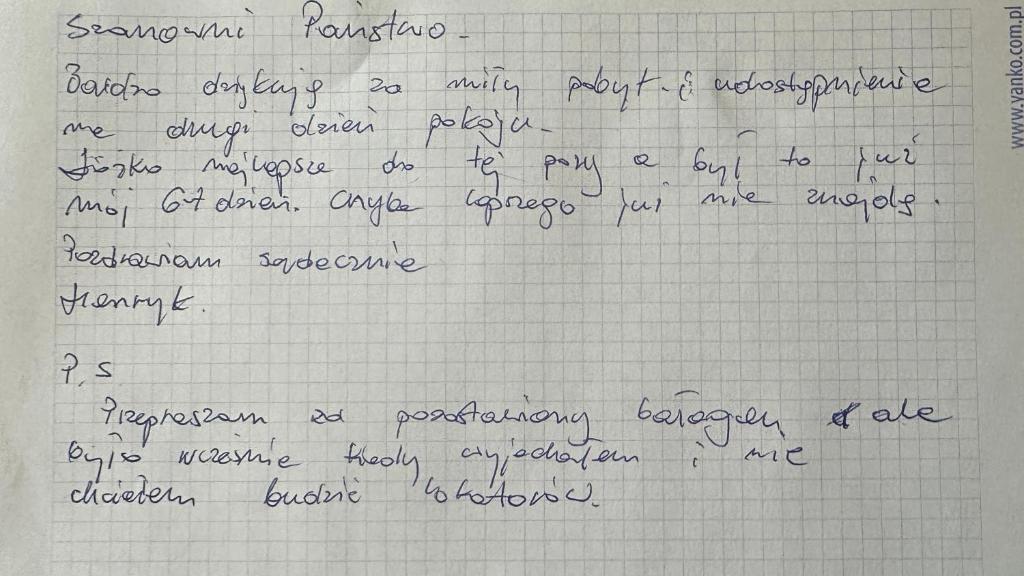 Szanowni Państwo -
Bardzo dziękuję za miły pobyt - i udostępnienie
na drugi dzień pokoju -
Łóżko najlepsze do tej pory a był to już
mój 6-7 dzień. Chyba lepszego już nie znajdę.
Pozdrawiam serdecznie
Henryk.
P.S
Przepraszam za pozostawiony bałagan, ale
było wcześnie kiedy wyjechałem i nie
chciałem budzić lokatorów.
www.vanko.com.pl